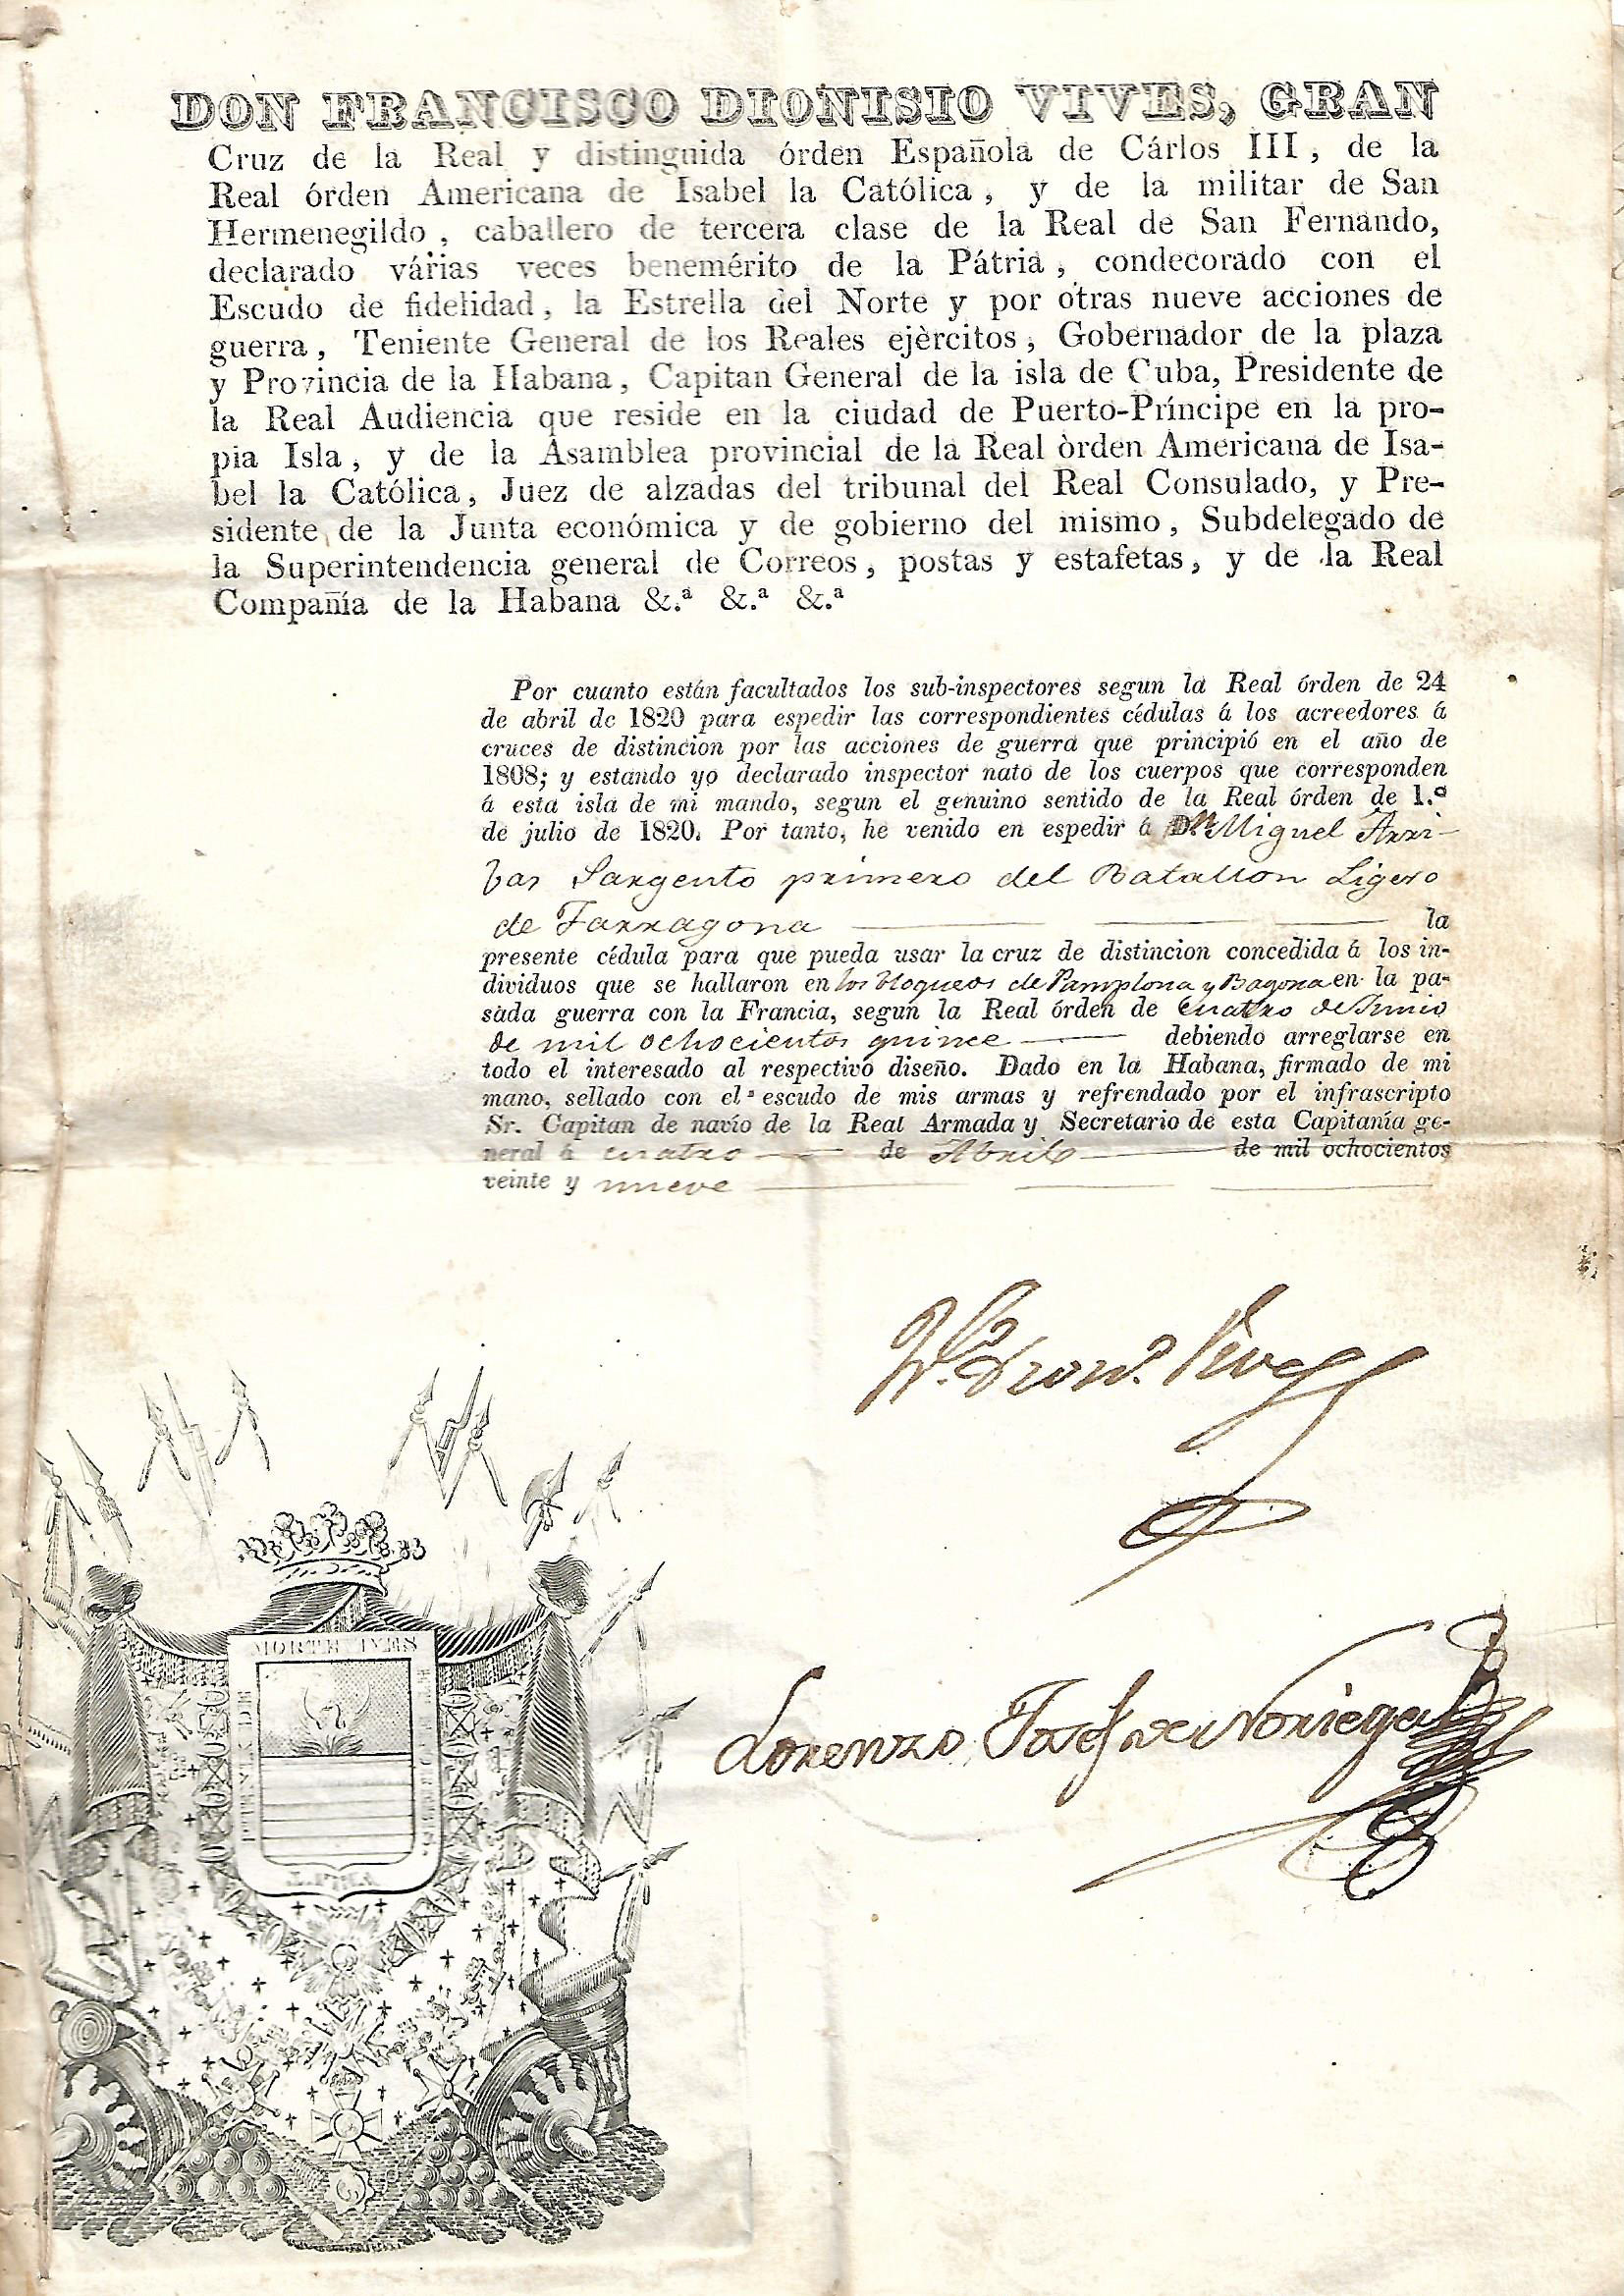 DON FRANCISCO DIONISIO VIVES, GRAN
Cruz de la Real y distinguida órden Española de Cárlos III, de la
Real órden Americana de Isabel la Católica, y de la militar de San
Hermenegildo, caballero de tercera clase de la Real de San Fernando,
declarado várias veces benemérito de la Pátria, condecorado con el
Escudo de fidelidad, la Estrella del Norte y por otras nueve acciones de
guerra, Teniente General de los Reales ejèrcitos, Gobernador de la plaza
y Provincia de la Habana, Capitan General de la isla de Cuba, Presidente de
la Real Audiencia que reside en la ciudad de Puerto-Príncipe en la pro-
pia Isla, y de la Asamblea provincial de la Real òrden Americana de Isa-
bel la Católica, Juez de alzadas del tribunal del Real Consulado, y Pre-
sidente de la Junta económica y de gobierno del mismo, Subdelegado de
la Superintendencia general de Correos, postas y estafetas, y de la Real
Compañía de la Habana &.ª &.ª &.ª
Por cuanto están facultados los sub-inspectores segun la Real órden de 24
de abril de 1820 para espedir las correspondientes cédulas á los acreedores á
cruces de distincion por las acciones de guerra que principió en el año de
1808; y estando yo declarado inspector nato de los cuerpos que corresponden
á esta isla de mi mando, segun el genuino sentido de la Real órden de 1.º
de julio de 1820. Por tanto, he venido en espedir á D.n Miguel Arri-
bas Sargento primero del Batallon Ligero
de Tarragona la
presente cédula para que pueda usar la cruz de distincion concedida á los in-
dividuos que se hallaron en los bloqueos de Pamplona y Bayona en la pa-
sada guerra con la Francia, segun la Real órden de cuatro de Junio
de mil ochocientos quince debiendo arreglarse en
todo el interesado al respectivo diseño. Dado en la Habana, firmado de mi
mano, sellado con el escudo de mis armas y refrendado por el infrascripto
Sr. Capitan de navío de la Real Armada y Secretario de esta Capitanía ge-
neral á cuatro de Abril de mil ochocientos
veinte y nueve
Fco. Dion.º Vives
Lorenzo Josef de Noriega
MORTE IVES